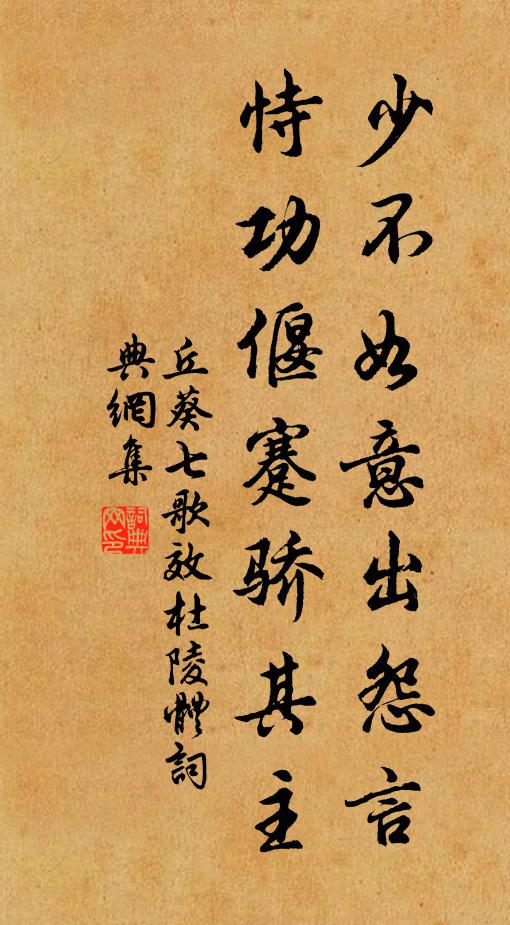 少不如意出怨言
恃功偃蹇骄其主
丘葵七歌效杜陵體詞
典網集
詞典
网印